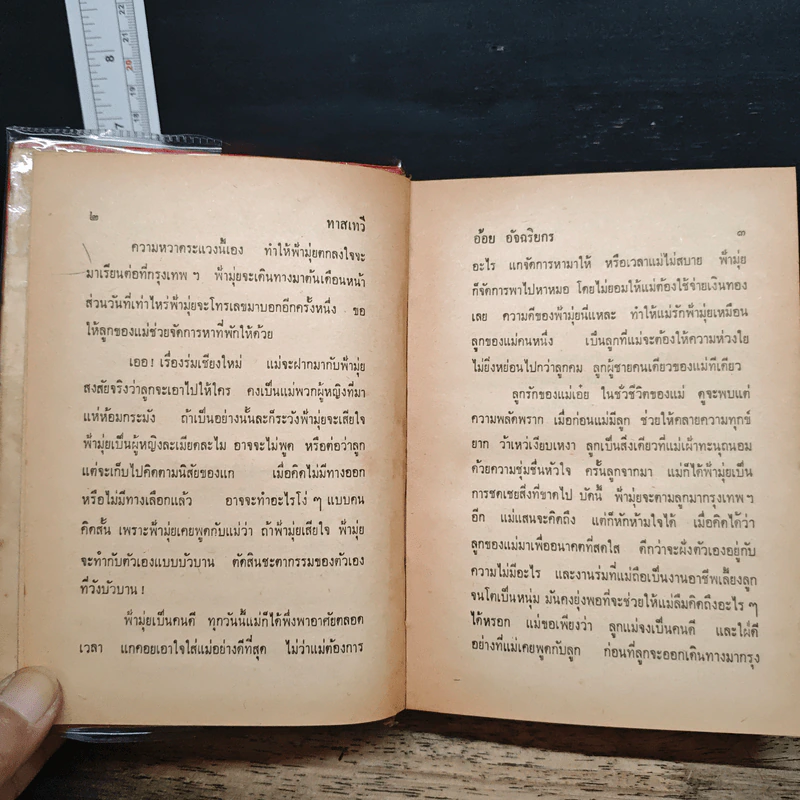 22
21
8
20
19
7
18
๒ ทาสเทวี
ความหวาดระแวงนี้เอง ทำให้ฟ้ามุ่ยตกลงใจจะ
มาเรียนต่อที่กรุงเทพ ฯ ฟ้ามุ่ยจะเดินทางมาต้นเดือนหน้า
ส่วนวันที่เท่าไหร่ฟ้ามุ่ยจะโทรเลขมาบอกอีกครั้งหนึ่ง ขอ
ให้ลูกของแม่ช่วยจัดการหาที่พักให้ด้วย
เออ ! เรื่องร่มเชียงใหม่ แม่จะฝากมากับฟ้ามุ่ย
สงสัยจริงว่าลูกจะเอาไปให้ใคร คงเป็นแม่พวกผู้หญิงที่มา
แห่ห้อมกระมัง ถ้าเป็นอย่างนั้นละก็ระวังฟ้ามุ่ยจะเสียใจ
ฟ้ามุ่ยเป็นผู้หญิงละเมียดละไม อาจจะไม่พูด หรือต่อว่าลูก
แต่จะเก็บไปคิดตามนิสัยของแก เมื่อคิดไม่มีทางออก
หรือไม่มีทางเลือกแล้ว อาจจะทำอะไรโง่ ๆ แบบคน
คิดสั้น เพราะฟ้ามุ่ยเคยพูดกับแม่ว่า ถ้าฟ้ามุ่ยเสียใจ ฟ้ามุ่ย
จะทำกับตัวเองแบบบัวบาน ตัดสินชะตากรรมของตัวเอง
ที่วังบัวบาน !
ฟ้ามุ่ยเป็นคนดี ทุกวันนี้แม่ก็ได้พึ่งพาอาศัยตลอด
เวลา แกคอยเอาใจใส่แม่อย่างดีที่สุด ไม่ว่าแม่ต้องการ
อ้อย อัจฉริยกร ๓
อะไร แกจัดการหามาให้ หรือเวลาแม่ไม่สบาย ฟ้ามุ่ย
ก็จัดการพาไปหาหมอ โดยไม่ยอมให้แม่ต้องใช้จ่ายเงินทอง
เลย ความดีของฟ้ามุ่ยนี่แหละ ทำให้แม่รักฟ้ามุ่ยเหมือน
ลูกของแม่คนหนึ่ง เป็นลูกที่แม่จะต้องให้ความห่วงใย
ไม่ยิ่งหย่อนไปกว่าลูกคม ลูกผู้ชายคนเดียวของแม่ทีเดียว
ลูกรักของแม่เอ๋ย ในชั่วชีวิตของแม่ ดูจะพบแต่
ความพลัดพราก เมื่อก่อนแม่มีลูก ช่วยให้คลายความทุกข์
ยาก ว้าเหว่เงียบเหงา ลูกเป็นสิ่งเดียวที่แม่เฝ้าทะนุถนอม
ด้วยความชุ่มชื่นหัวใจ ครั้นลูกจากมา แม่ก็ได้ฟ้ามุ่ยเป็น
การชดเชยสิ่งที่ขาดไป บัดนี้ ฟ้ามุ่ยจะตามลูกมากรุงเทพ ฯ
อีก แม่แสนจะคิดถึง แต่ก็หักห้ามใจได้ เมื่อคิดได้ว่า
ลูกของแม่มาเพื่ออนาคตที่สดใส ดีกว่าจะฝังตัวเองอยู่กับ
ความไม่มีอะไร และงานร่มที่แม่ถือเป็นงานอาชีพเลี้ยงลูก
จนโตเป็นหนุ่ม มันคงยุ่งพอที่จะช่วยให้แม่ลืมคิดถึงอะไร ๆ
ได้หรอก แม่ขอเพียงว่า ลูกแม่จงเป็นคนดี และใฝ่ดี
อย่างที่แม่เคยพูดกับลูก ก่อนที่ลูกจะออกเดินทางมากรุง